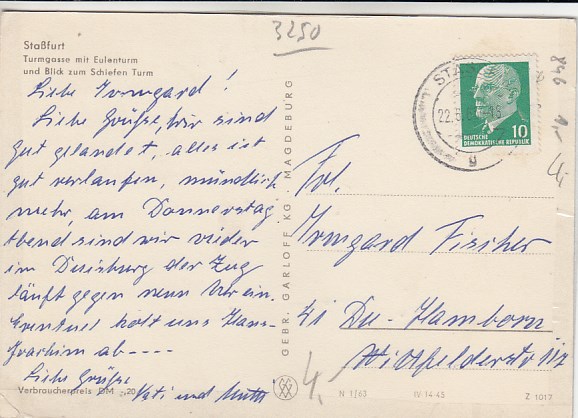 3250
Staßfurt
Turmgasse mit Eulenturm
und Blick zum Schiefen Turm
Liebe Irmgard!
Liebe Grüße, wir sind
gut gelandet, alles ist
gut verlaufen, mündlich
mehr, am Donnerstag
Abend sind wir wieder
in Duisburg der Zug
läuft gegen neun Uhr ein.
Eventuel holt uns Hans-
Joachim ab ----
Liebe Grüße
Vati und Mutti
Verbraucherpreis DM -,20
GEBR. GARLOFF KG · MAGDEBURG
STASSFURT
22.5.
10
DEUTSCHE
DEMOKRATISCHE REPUBLIK
g
846
4,
Frl.
Irmgard Fischer
41 Du-Hamborn
4.
N 1/63
IV-14-45
Z 1017